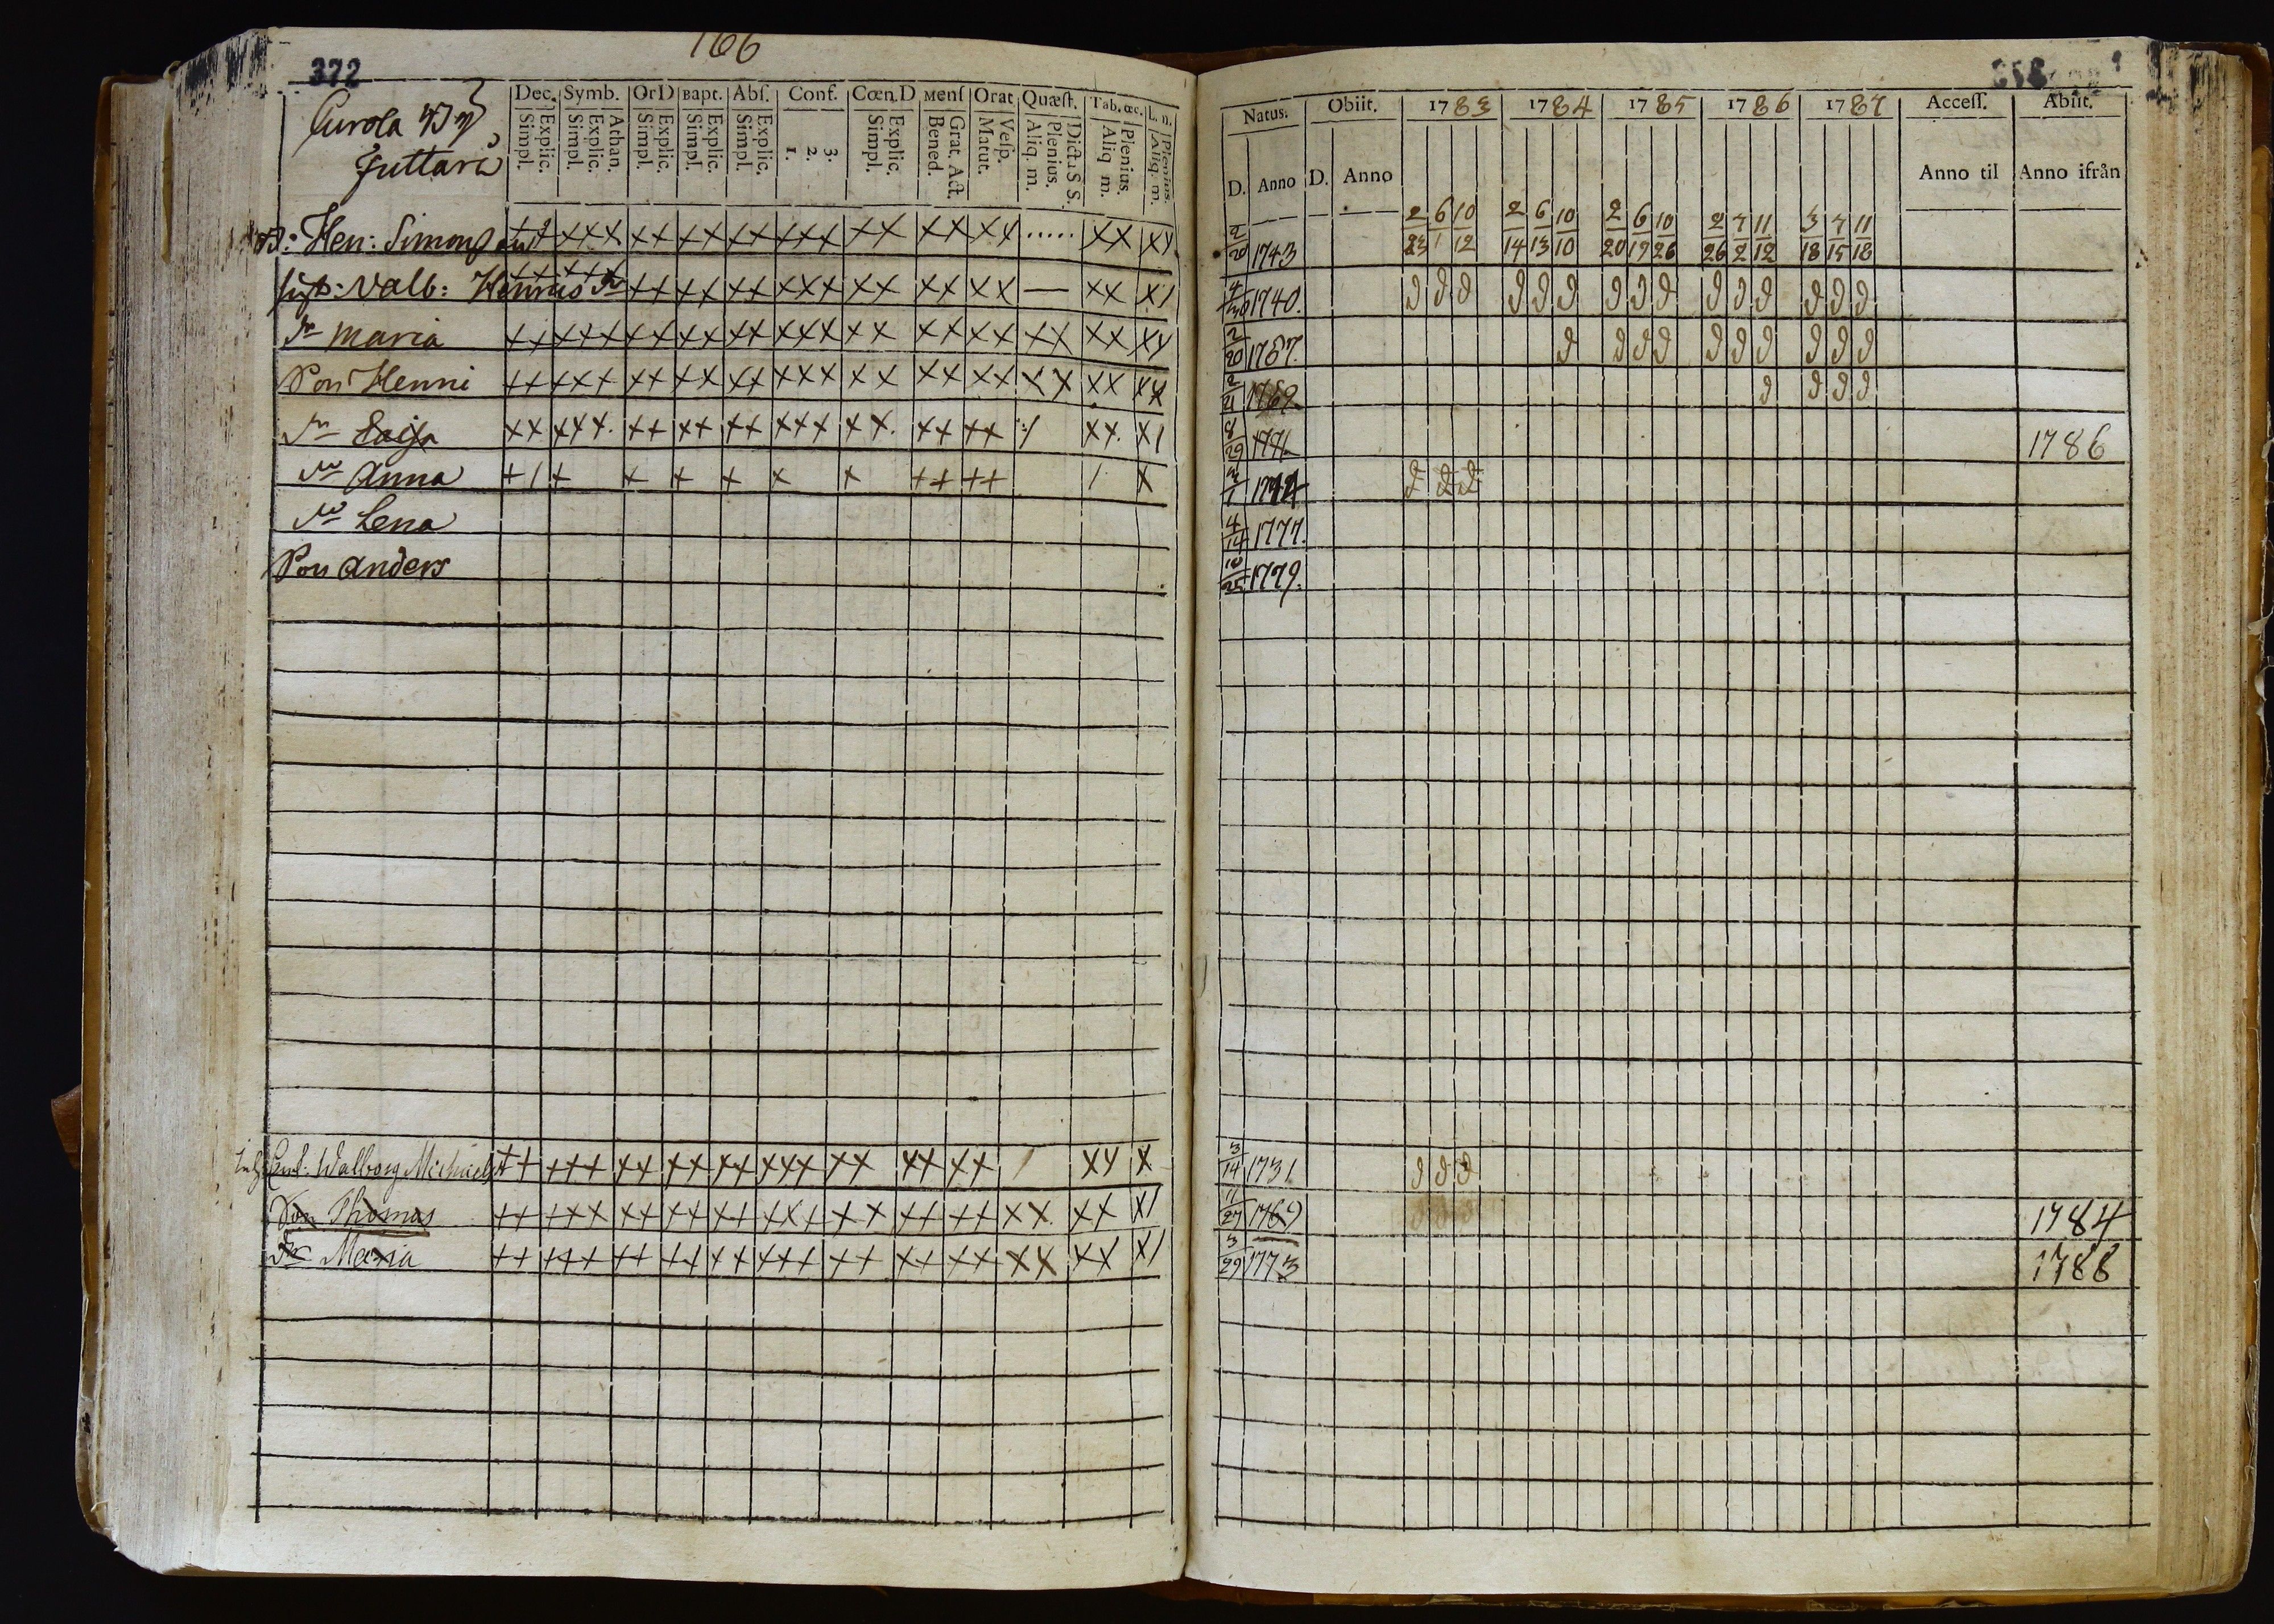 166
372
Curola By
Juttari
Dec. Symb. OrD Bapt. Abſ. Conf. Cœn.D Menſ Orat Quæſt. Tab. œc. L. n.
Explic. Simpl. Athan. Explic. Simpl. Explic. Simpl. Explic. Simpl. Explic. Simpl. 3. 2. 1. Explic. Simpl. Grat. Act. Bened. Veſp. Matut. Dict. S S. Plenius. Aliq. m. Plenius. Aliq m. Plenius. Aliq. m.
B: Hen: Simonſson xx xxx xx xx xx xxx xx xx xx ..... xx xx
hust: Valb: Henrics dr xx xxx xx xx xx xxx xx xx xx — xx x/
dr Maria xx xxx xx xx xx xxx xx xx xx xx xx xx
Son Henric xx xxx xx xx xx xxx xx xx xx xx xx xx
dr Caisa xx xxx. xx xx xx xxx xx. xx xx :/ xx. x/
dr Anna x/ x x x x x x xx xx / x
dr Lena
Son Anders
Inh. Enk. Walborg Michaelsdr xx xxx xx xx xx xxx xx xx xx / xx x
Son Thomas xx xxx xx xx xx xxx xx xx xx xx. xx x/
dr Maria xx xxx xx xx xx xxx xx xx xx xx xx x/
Natus. Obiit. 1783 1784 1785 1786 1787 Acceſſ. Abiit.
D. Anno D. Anno Anno til Anno ifrån
2 6 10 2 6 10 2 6 10 2 7 11 3 7 11
2/20 1743 23 1 12 14 13 10 20 19 26 26 2 12 18 15 18
4/30 1740. d d d d d d d d d d d d d d d
2/20 1767. d d d d d d d d d d
2/21 1769 d d d d
8/29 1771 1786
3/1 1774 d d d
4/14 1777.
10/25 1779.
3/14 1731 d d d
11/27 1769 1784
3/29 1773 1788